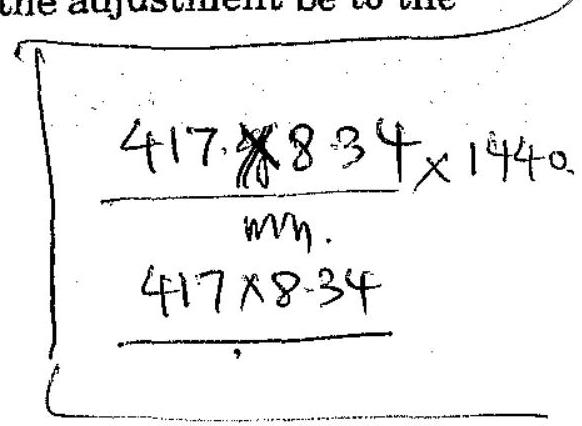 the adjustment be to the
417 × 8.34 × 1440.
min.
417 × 8.34